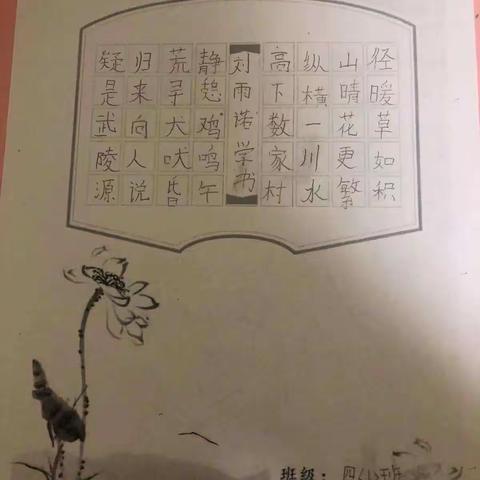 径暖草如积
山晴花更繁
纵横一川水
高下数家村
刘雨诺学书
静憩鸡鸣午
荒寻犬吠昏
归来向人说
疑是武陵源
班级：四(1)班